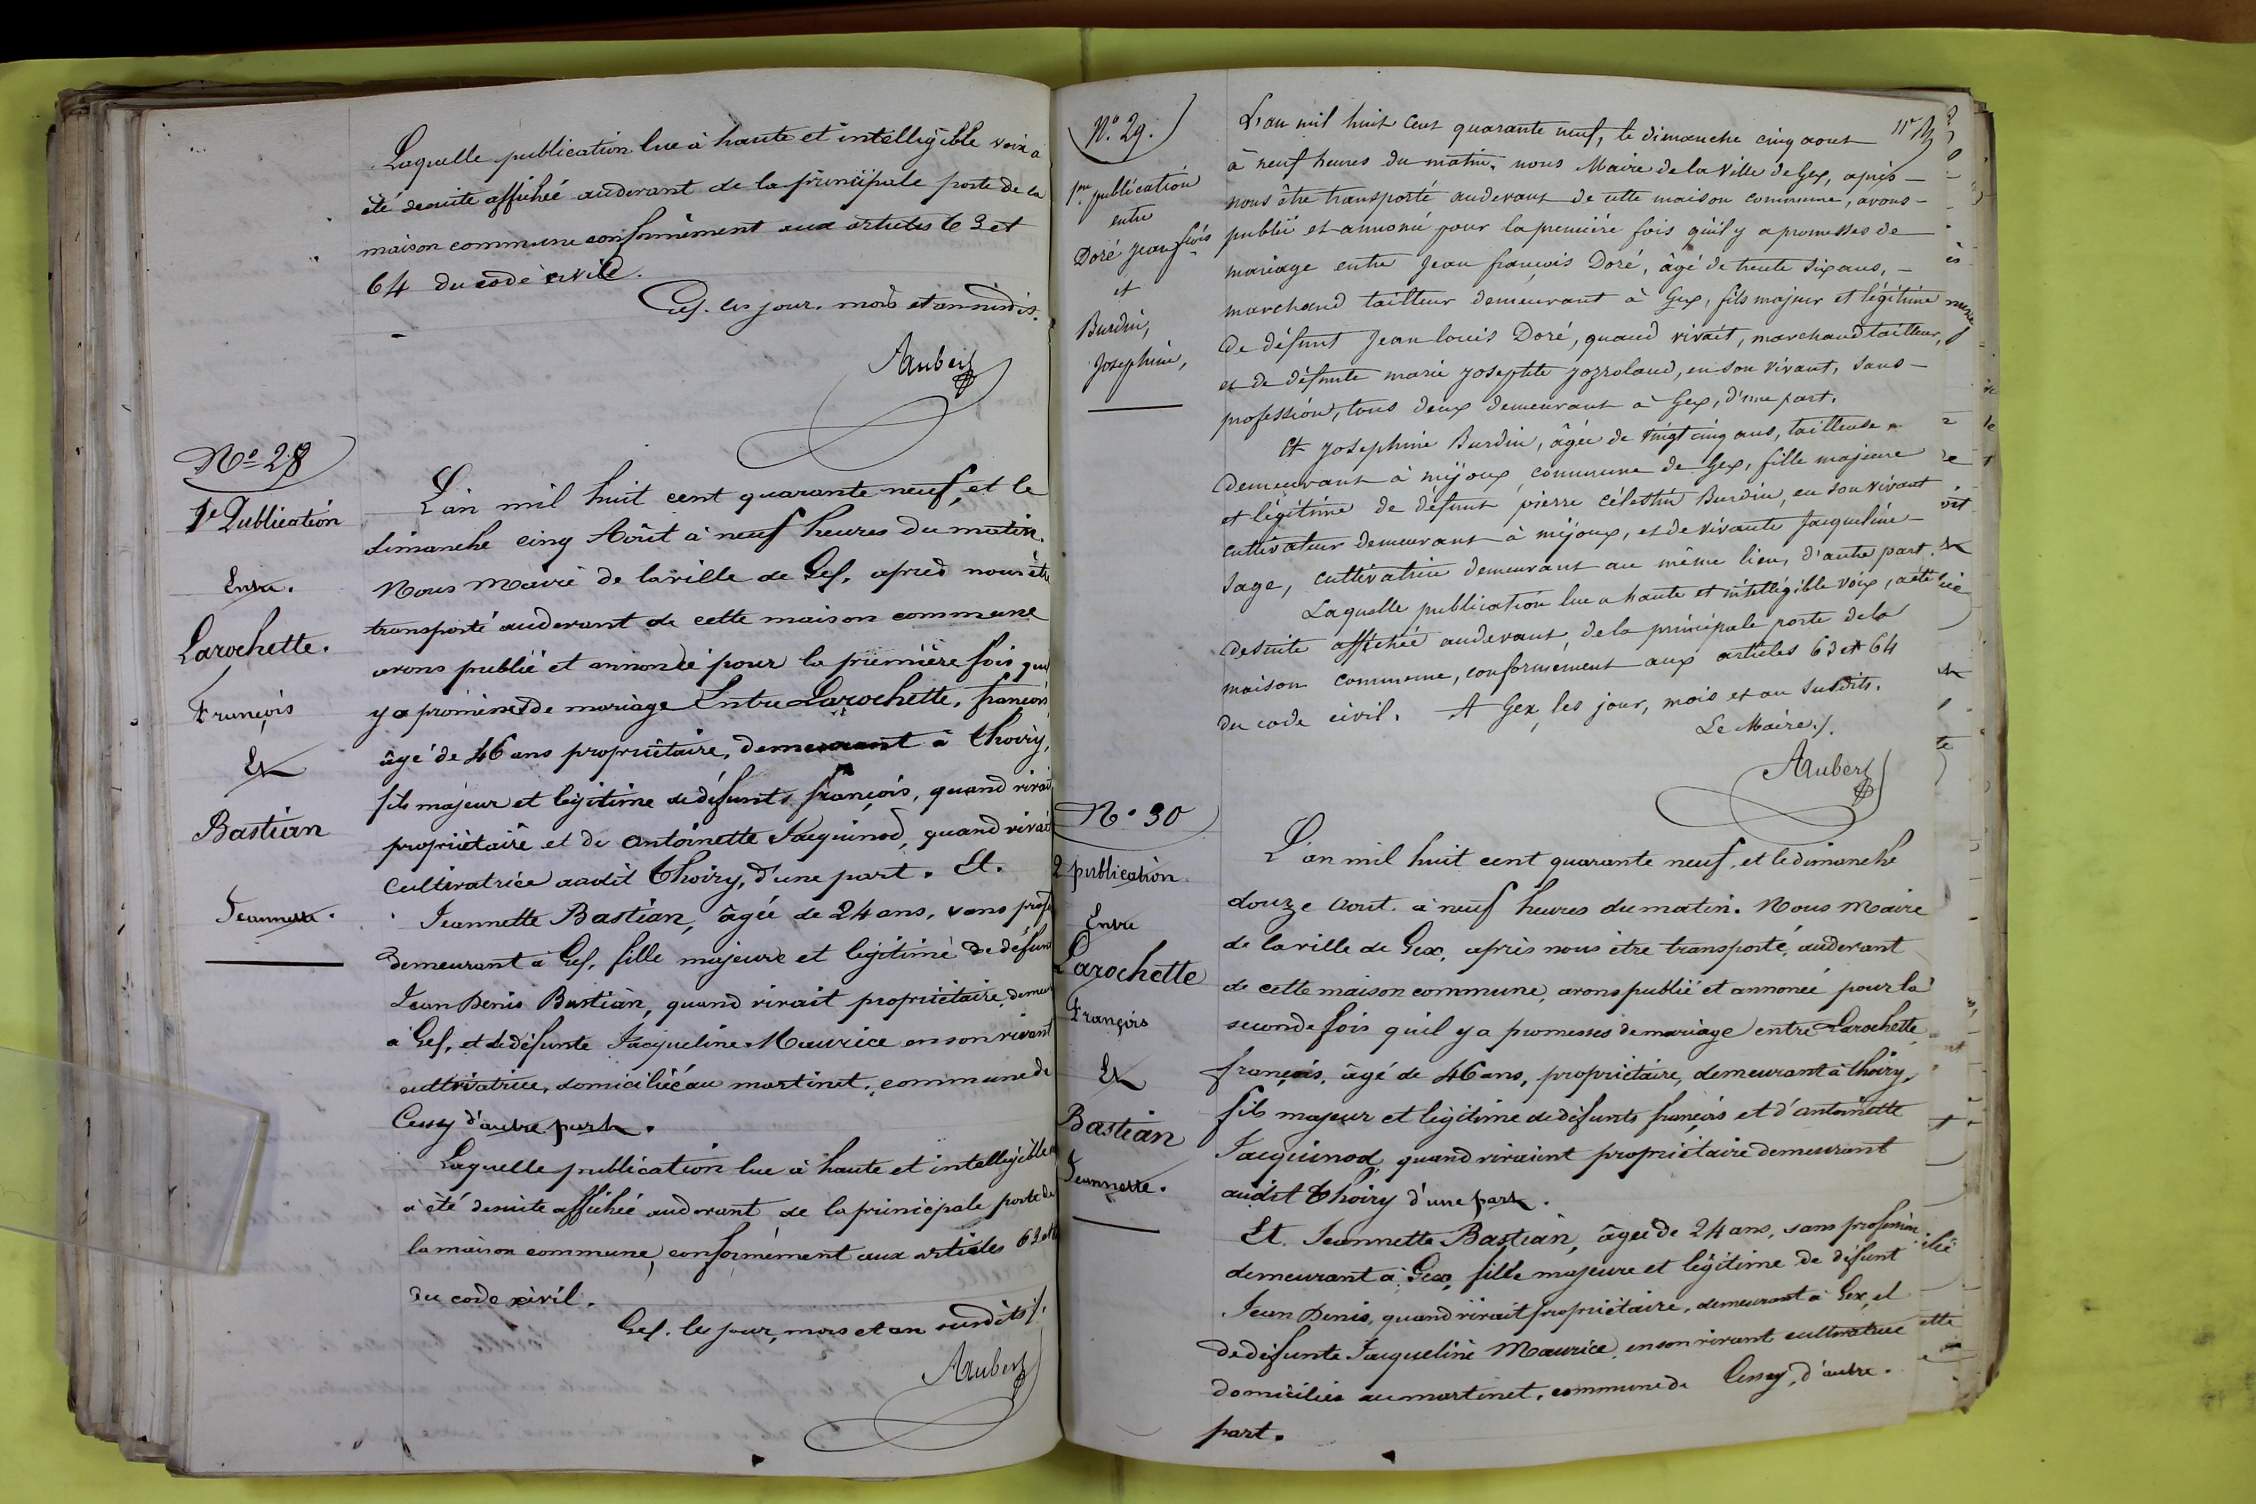 Laquelle publication lue à haute et intelligible voix a
été desuite affichée audevant de la principale porte de la
maison commune conformément aux articles 63 et
64 du code civile.
Gex. les jour, mois et an susdis.
AAubert
No 28
1e Publication
Entre.
Larochette.
François
Et
Bastian
Jeannette.
L'an mil huit cent quarante neuf, et le
dimanche cinq Août à neuf heures du matin.
Nous Maire de la ville de Gex, après nous être
transporté audevant de cette maison commune
avons publié et annoncé pour la première fois
y a promesse de mariage Entre Larochette, françois
âgé de 46 ans propriétaire, demeurant à Thoiry,
fils majeur et légitime de défunts françois, quand vivait
propriétaire et de antoinette Jacquinod, quand vivait
Cultivatrice audit Thoiry, d'une part. Et.
Jeannette Bastian, âgée de 24 ans, sans
demeurant à Gex, fille majeure et légitime de défunt
Jean Denis Bastian, quand vivait propriétaire,
à Gex, et de défunte Jacqueline Maurice en son vivant
cultivatrice, domiciliée au martinet, commune de
Cessy d'autre part.
Laquelle publication lue à haute et intelligible
a été desuite affichée audevant de la principale porte de
la maison commune, conformément aux articles 63 et
du code civil.
Gex. les jour, mois et an susdits /.
AAubert
No. 29.
1re publication
entre
Doré jean fçois
et
Burdin,
Josephine,
11e
L'an mil huit cent quarante neuf, le dimanche cinq aout
à neuf heures du matin, nous Maire de la Ville de Gex, après
nous être transporté audevant de cette maison commune, avons
publié et annoncé pour la première fois qu'il y a promesses de
mariage entre jean françois Doré, âgé de trente six ans,
marchand tailleur demeurant à Gex, fils majeur et légitime
de défunt jean louis Doré, quand vivait, marchand tailleur,
et de défunte marie josephte jozroland, en son vivant, sans
profession, tous deux demeurant à Gex, d'une part.
Et josephine Burdin, âgée de vingt cinq ans, tailleuse
demeurant à mijoux, commune de Gex, fille majeure
et légitime de défunt pierre célestin Burdin, en son vivant
cultivateur demeurant à mijoux, et de vivante jacqueline
Sage, cultivatrice demeurant au même lieu, d'autre part.
Laquelle publication lue a haute et intelligible voix, a été
desuite affichée audevant de la principale porte de la
maison commune, conformément aux articles 63 et 64
du code civil. A Gex, les jour, mois et an susdits.
Le Maire /.
AAubert
No. 30
2 publication
Entre
Larochette
François
Et
Bastian
Jeannette.
L'an mil huit cent quarante neuf, et le dimanche
douze aout à neuf heures du matin. Nous Maire
de la ville de Gex, après nous être transporté audevant
de cette maison commune, avons publié et annoncé pour la
seconde fois quil y a promesses de mariage entre Larochette
françois, âgé de 46 ans, propriétaire, demeurant à Thoiry,
fils majeur et légitime de défunts françois et d'antoinette
Jacquinod, quand vivaient propriétaire demeurant
audit Thoiry d'une part.
Et. Jeannette Bastian, âgée de 24 ans, sans profession
demeurant à Gex, fille majeure et légitime de défunt
Jean Denis, quand vivait propriétaire, demeurant à Gex, et
de défunte Jacqueline Maurice, en son vivant cultivatrice
domiciliée au martinet, commune de Cessy, d'autre.
part.